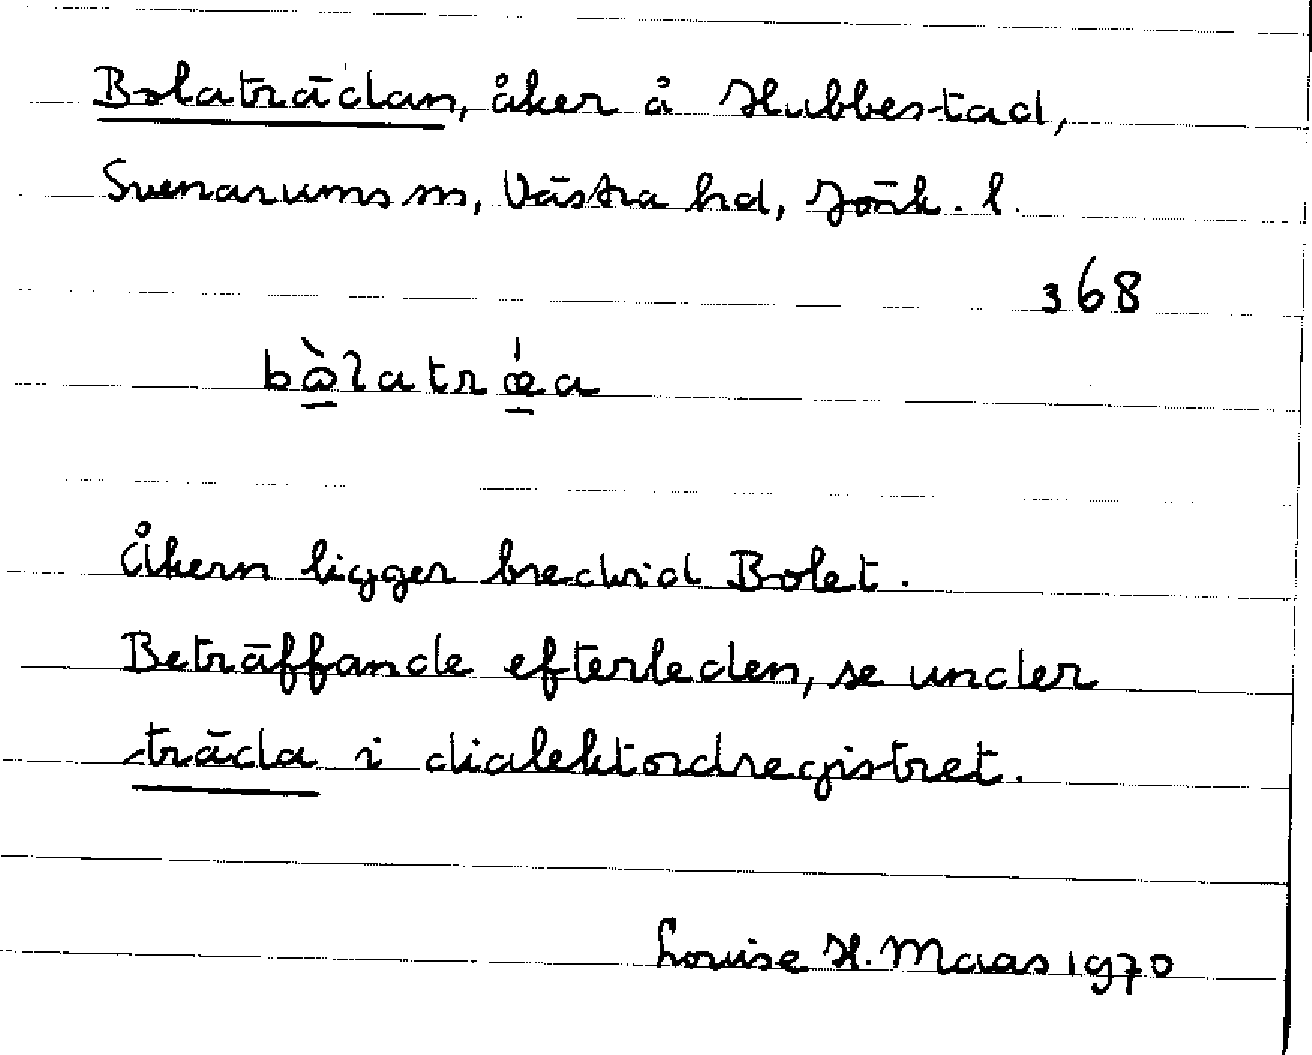 Bolaträdan, åker å Hubbestad,
Svenarums sn, Västra hd, Jönk. l.
368
bὼlatrǽa
Åkern ligger bredvid Bolet.
Beträffande efterleden, se under
träda i dialektordregistret.
Louise H. Maas 1970